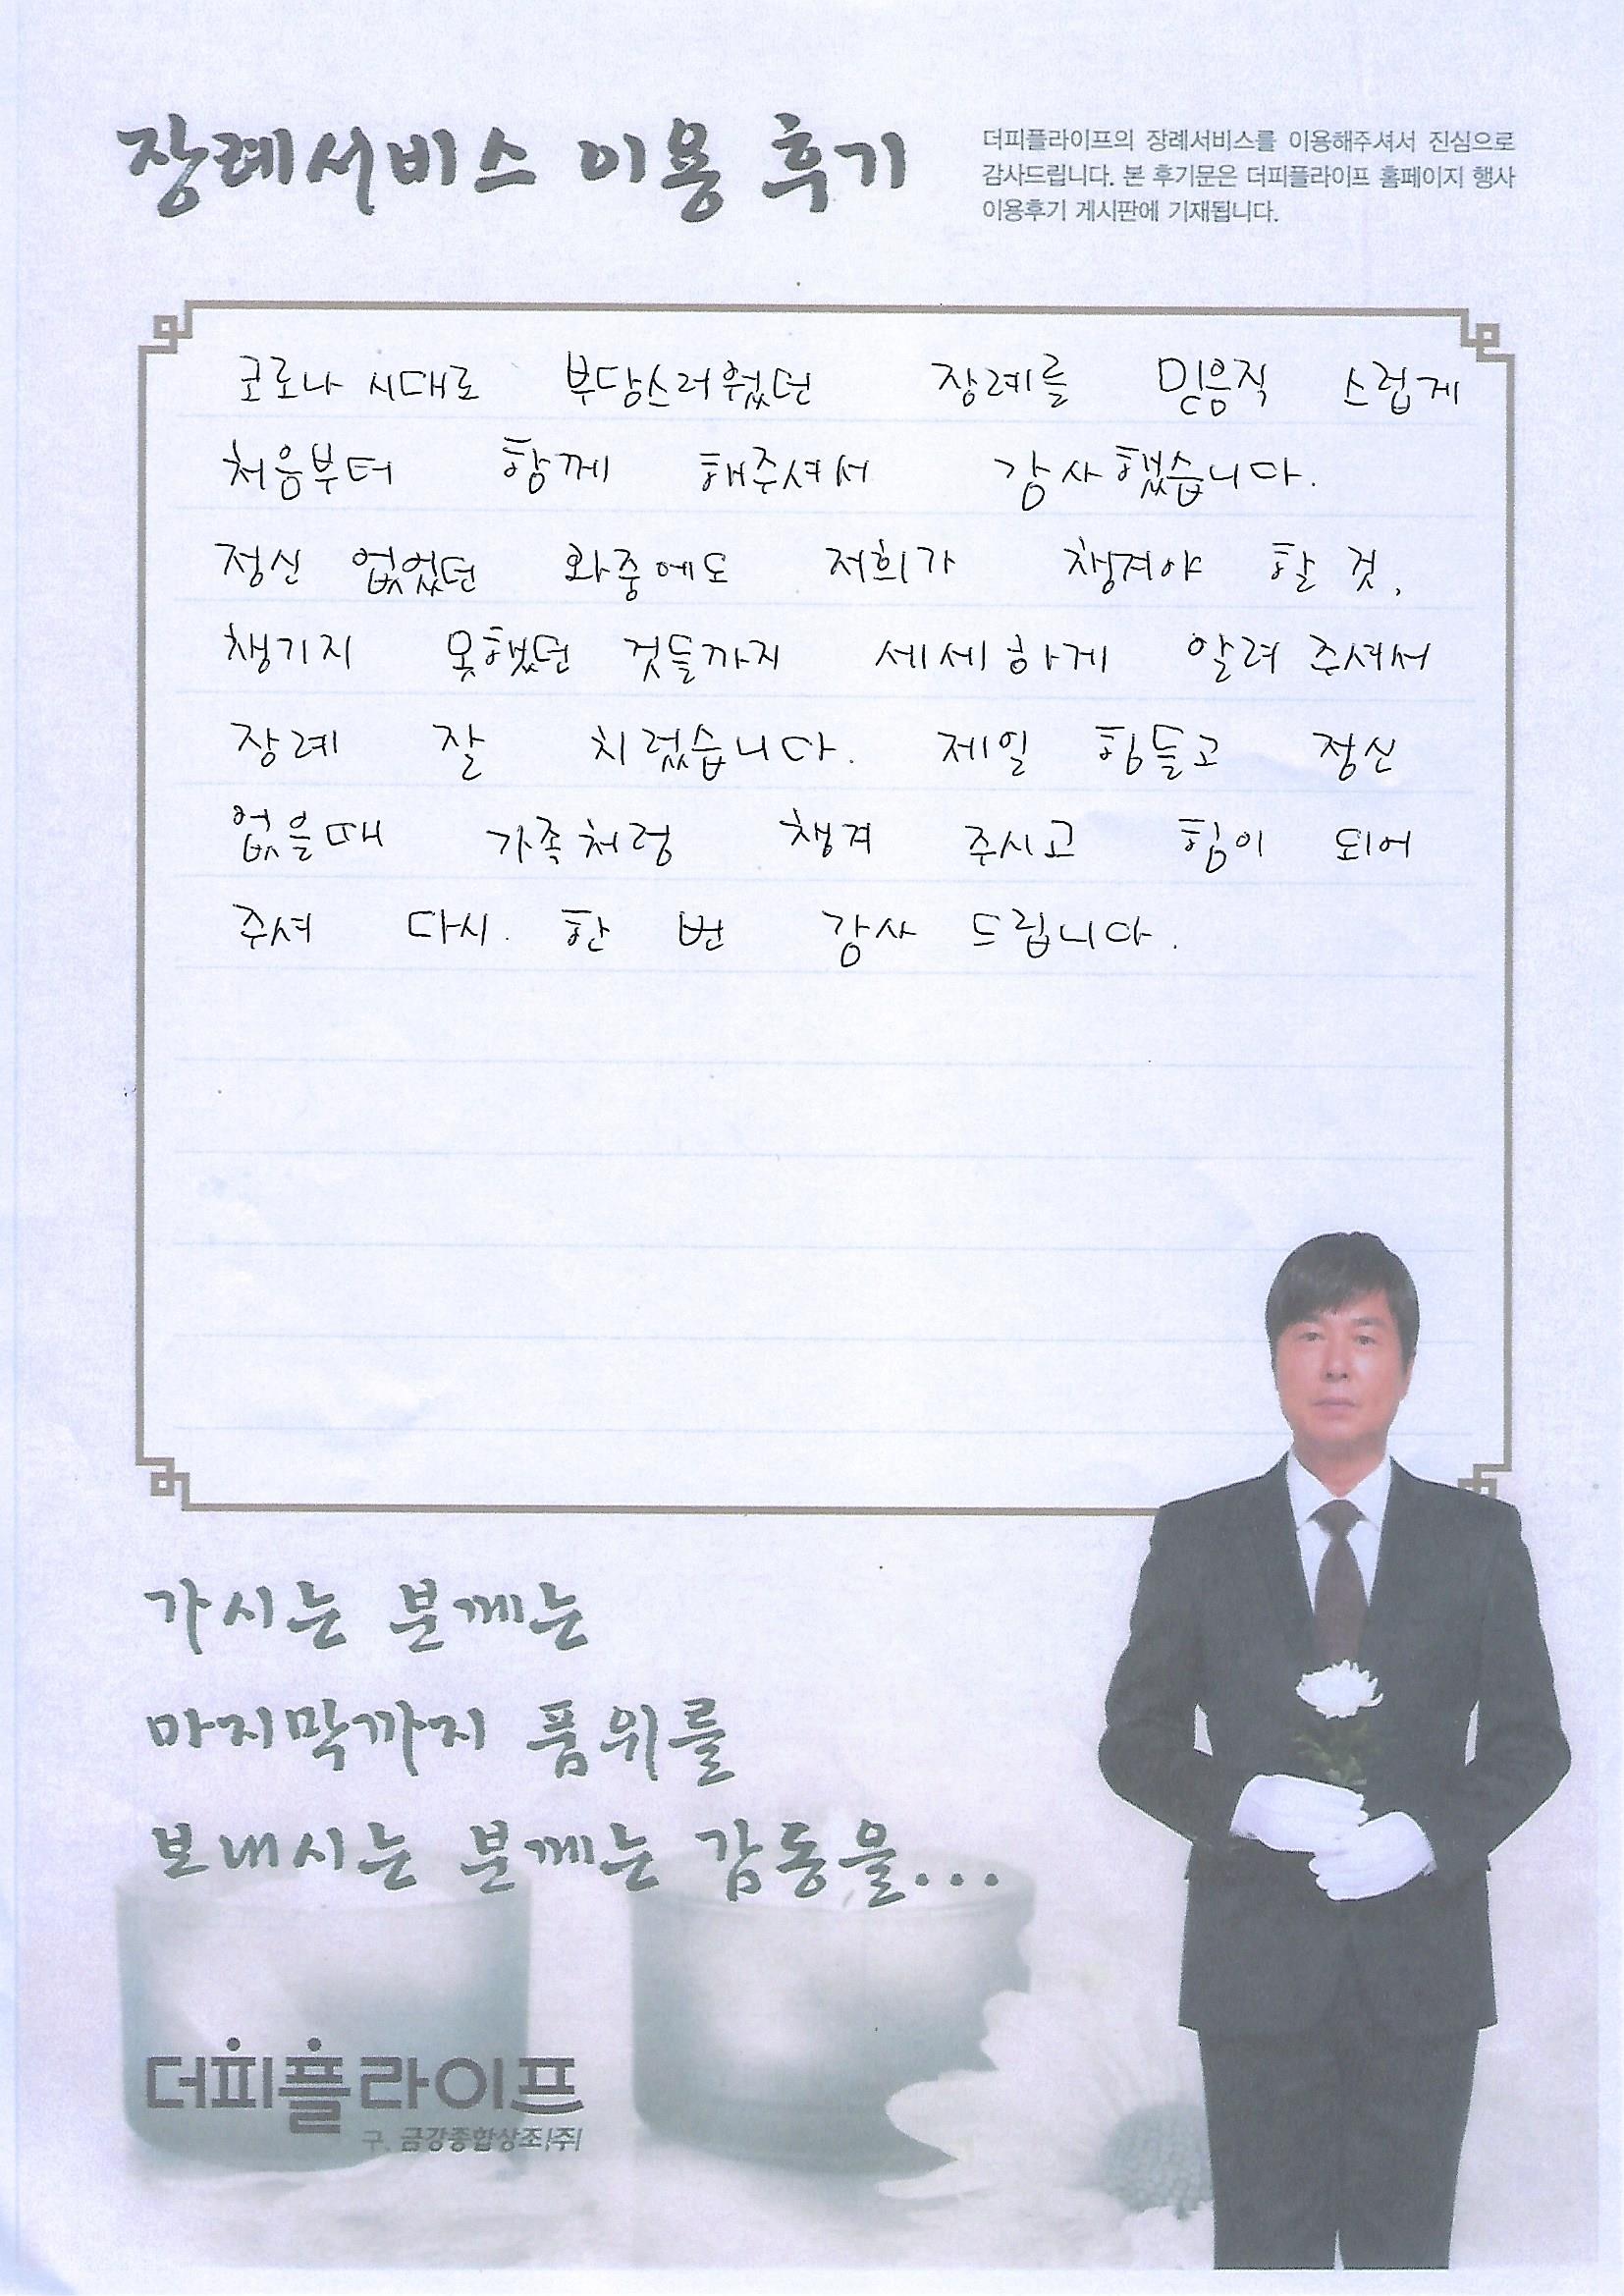 장례서비스 이용 후기
더피플라이프의 장례서비스를 이용해주셔서 진심으로
감사드립니다. 본 후기문은 더피플라이프 홈페이지 행사
이용후기 게시판에 기재됩니다.
코로나 시대로 부담스러웠던 장례를 믿음직 스럽게
처음부터 함께 해주셔서 감사했습니다.
정신 없었던 와중에도 저희가 챙겨야 할 것,
챙기지 못했던 것들까지 세세하게 알려 주셔서
장례 잘 치렀습니다. 제일 힘들고 정신
없을때 가족처럼 챙겨 주시고 힘이 되어
주셔 다시. 한 번 감사 드립니다.
가시는 분께는
마지막까지 품위를
보내시는 분께는 감동을...
더피플라이프
구. 금강종합상조(주)